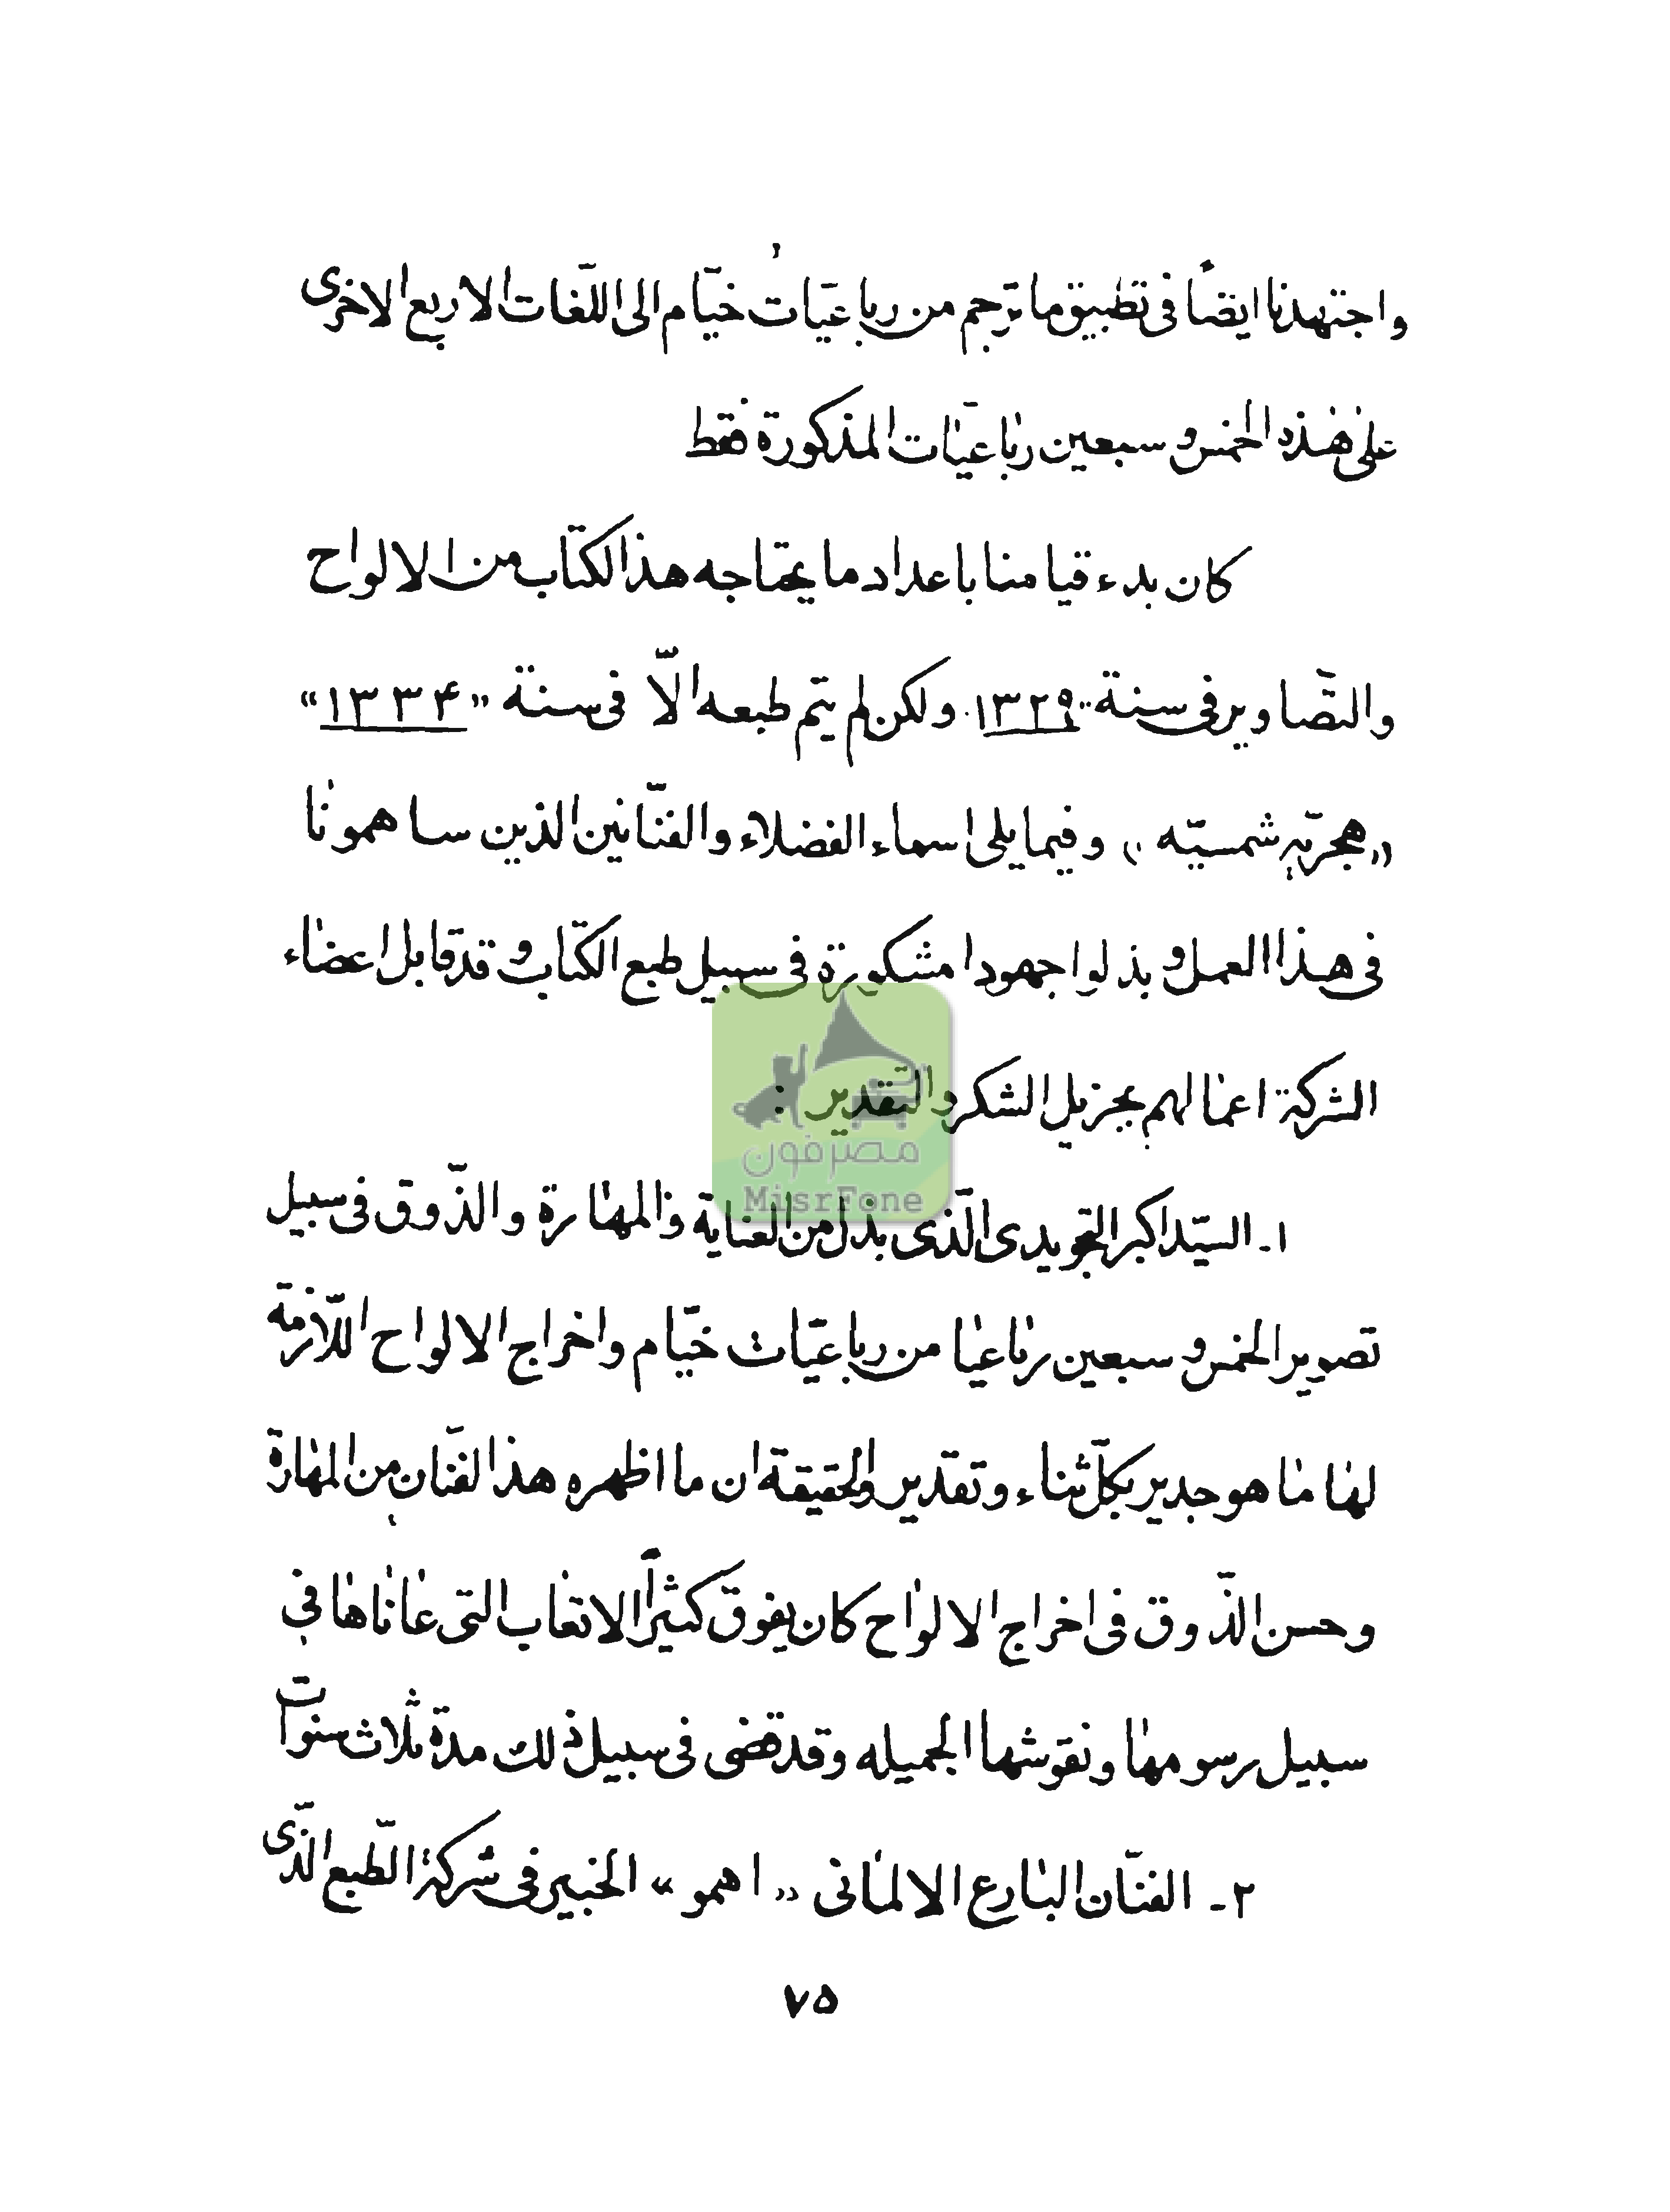 واجتهدنا ايضاً فى تطبيق ما ترجم من رباعيّات خيّام الى اللّغات الاربع الاخرى
على هذه الخمس و سبعين رباعيّات المذكورة فقط
كان بدء قيامنا باعداد ما يحتاجه هذا الكتاب من الالواح
والتصّاوير فى سنة "١٣٢٩" ولكن لم يتم طبعه الاّ فى سنة «١٣٣۴»
«هجريّه شمسيّه» وفيما يلى اسماء الفضلاء والفنّانين الذين ساهمونا
فى هذا العمل و بذلوا جهودا مشكورة فى سبيل طبع الكتاب و قد قابل اعضاء
الشركة اعمالهم بجزيل الشكر والتقدير :
١- السيّد اكبر التجويدى الّذى بذل من العناية والمهارة والذّوق فى سبيل
تصوير الخمس و سبعين رباعيا من رباعيّات خيّام واخراج الالواح اللاّزمة
لها ما هو جدير بكلّ ثناء وتقدير والحقيقة ان ما اظهره هذا الفنّان من المهارة
وحسن الذّوق فى اخراج الالواح كان يفوق كثيراً الاتعاب التى عاناها فى
سبيل رسومها ونقوشها الجميله وقد قضى فى سبيل ذلك مدة ثلاث سنوات
٢- الفنّان البارع الالمانى «اهمو» الخبير فى شركة الطّبع الّذى
٧۵
مصرفون
MisrFone